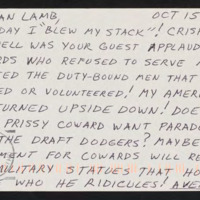 AN LAMB, OCT 15
DAY I "BLEW MY STACK"! CRISP
ELL WAS YOUR GUEST APPLAUD
RDS WHO REFUSED TO SERVE
ED THE DUTY-BOUND MEN THAT
ED OR VOLUNTEERED! MY AMER
TURNED UPSIDE DOWN! DOE
PRISSY COWARD WANT PARAD
THE DRAFT DODGERS? MAYBE
MENT FOR COWARDS WILL RE
MILITARY STATUES THAT HO
WHO HE RIDICULES!